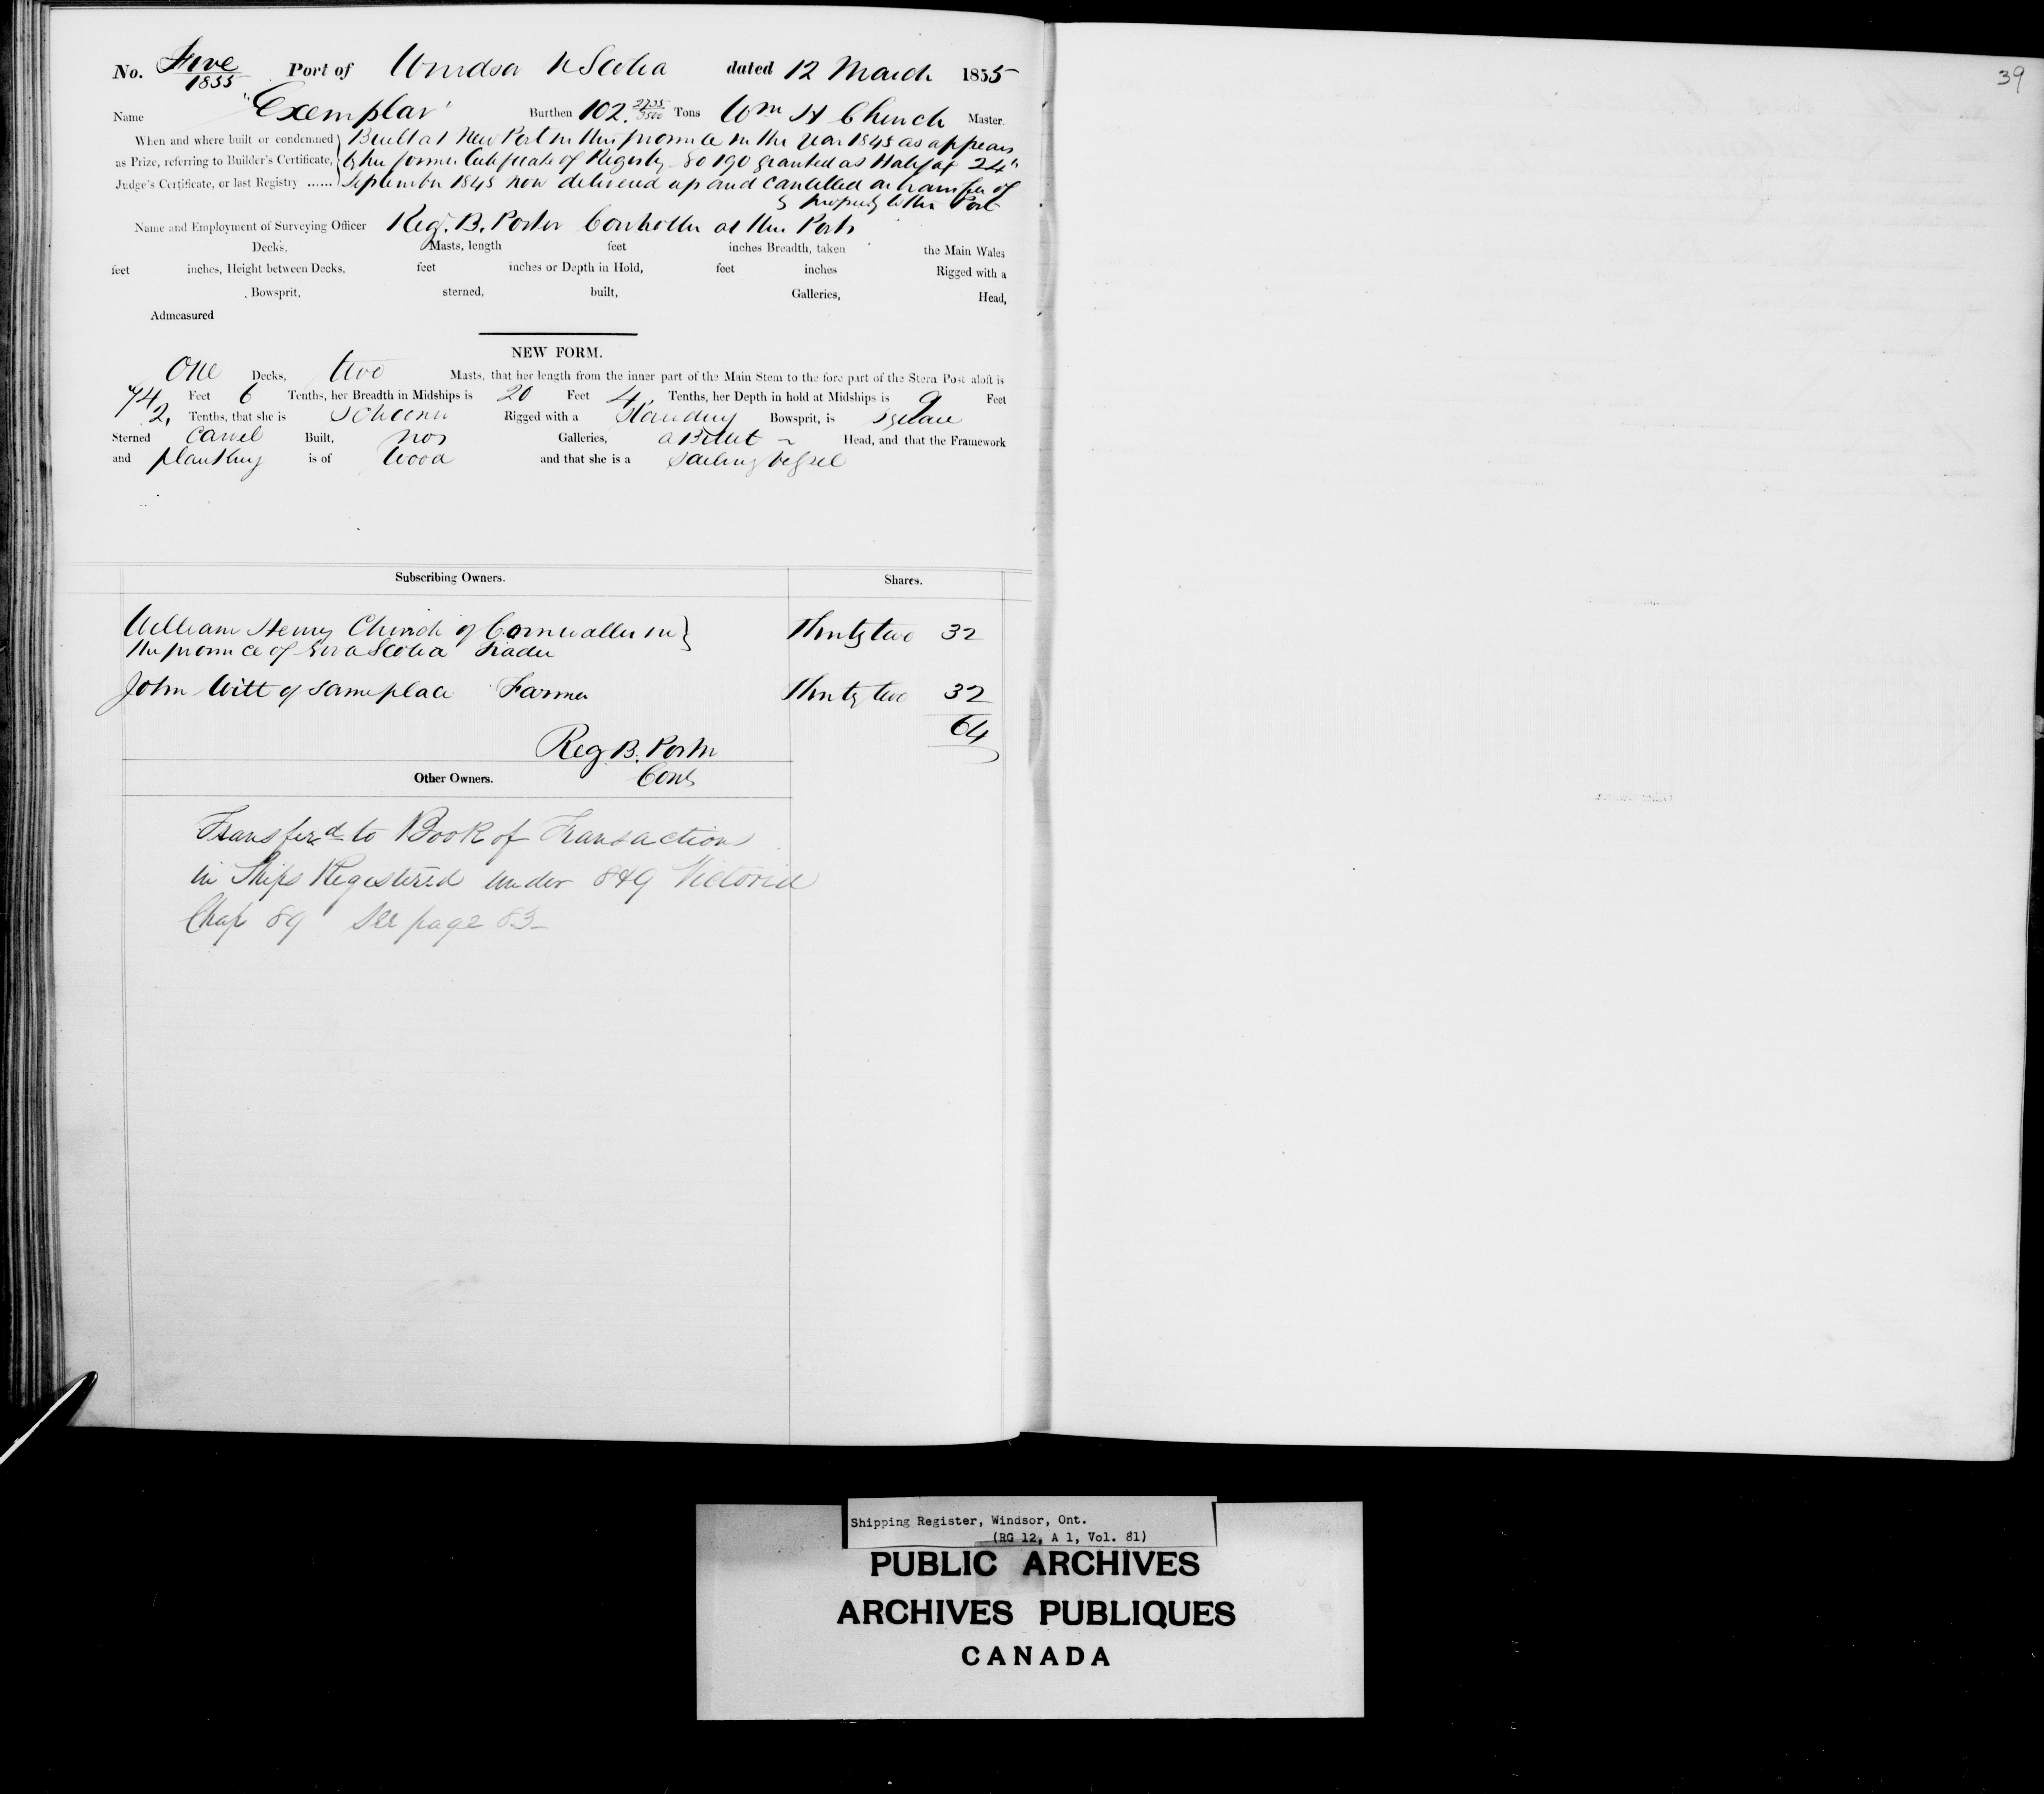 39
No. Five 1855 Port of Windsor N Scotia dated 12 March 1855
Name "Exemplar" Burthen 102. 2735/3500 Tons Wm H Church Master.
When and where built or condemned as Prize, referring to Builder's Certificate, Judge's Certificate, or last Registry ......
Built at New Port in this province in the year 1845 as appears
by her former Certificate of Registry No 190 granted at Halifax 24th
September 1845 now delivered up and cancelled on transfer of
property to this Port
Name and Employment of Surveying Officer Reg. B. Porter Controller at this Port
Decks, Masts, length feet inches Breadth, taken the Main Wales
feet inches, Height between Decks, feet inches or Depth in Hold, feet inches Rigged with a
Bowsprit, sterned, built, Galleries, Head,
Admeasured
NEW FORM.
One Decks, two Masts, that her length from the inner part of the Main Stem to the fore part of the Stern Post aloft is
74 Feet 6 Tenths, her Breadth in Midships is 20 Feet 4, Tenths, her Depth in hold at Midships is 9 Feet
2, Tenths, that she is Schooner Rigged with a Standing Bowsprit, is Square
Sterned Carvel Built, no Galleries, a Billet Head, and that the Framework
and planking is of Wood and that she is a Sailing Vessel
Subscribing Owners. Shares.
William Henry Church of Cornwallis in Thirty two 32
the province of Nova Scotia Trader
John Witt of same place Farmer Thirty two 32
64
Reg B. Porter
Cont
Other Owners.
Transferd to Book of Transactions
in Ships Registered under 8 & 9 Victoria
Chap 89 See page 83
Shipping Register, Windsor, Ont.
(RG 12, A 1, Vol. 81)
PUBLIC ARCHIVES
ARCHIVES PUBLIQUES
CANADA